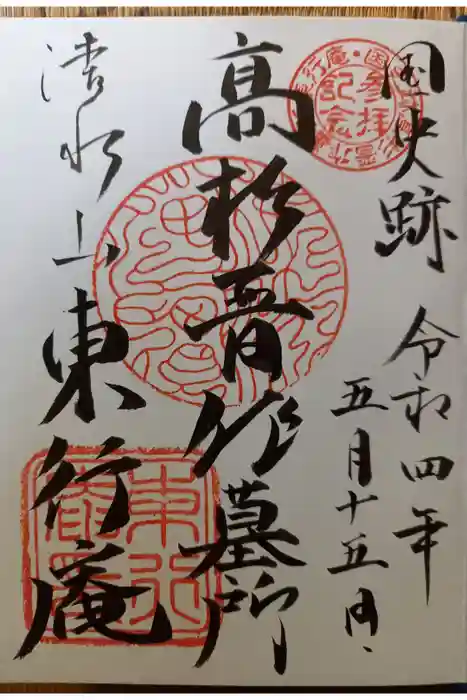 国史跡
令和四年
五月十五日
高杉晋作墓所
清水山東行庵
参拝
記念
東行庵